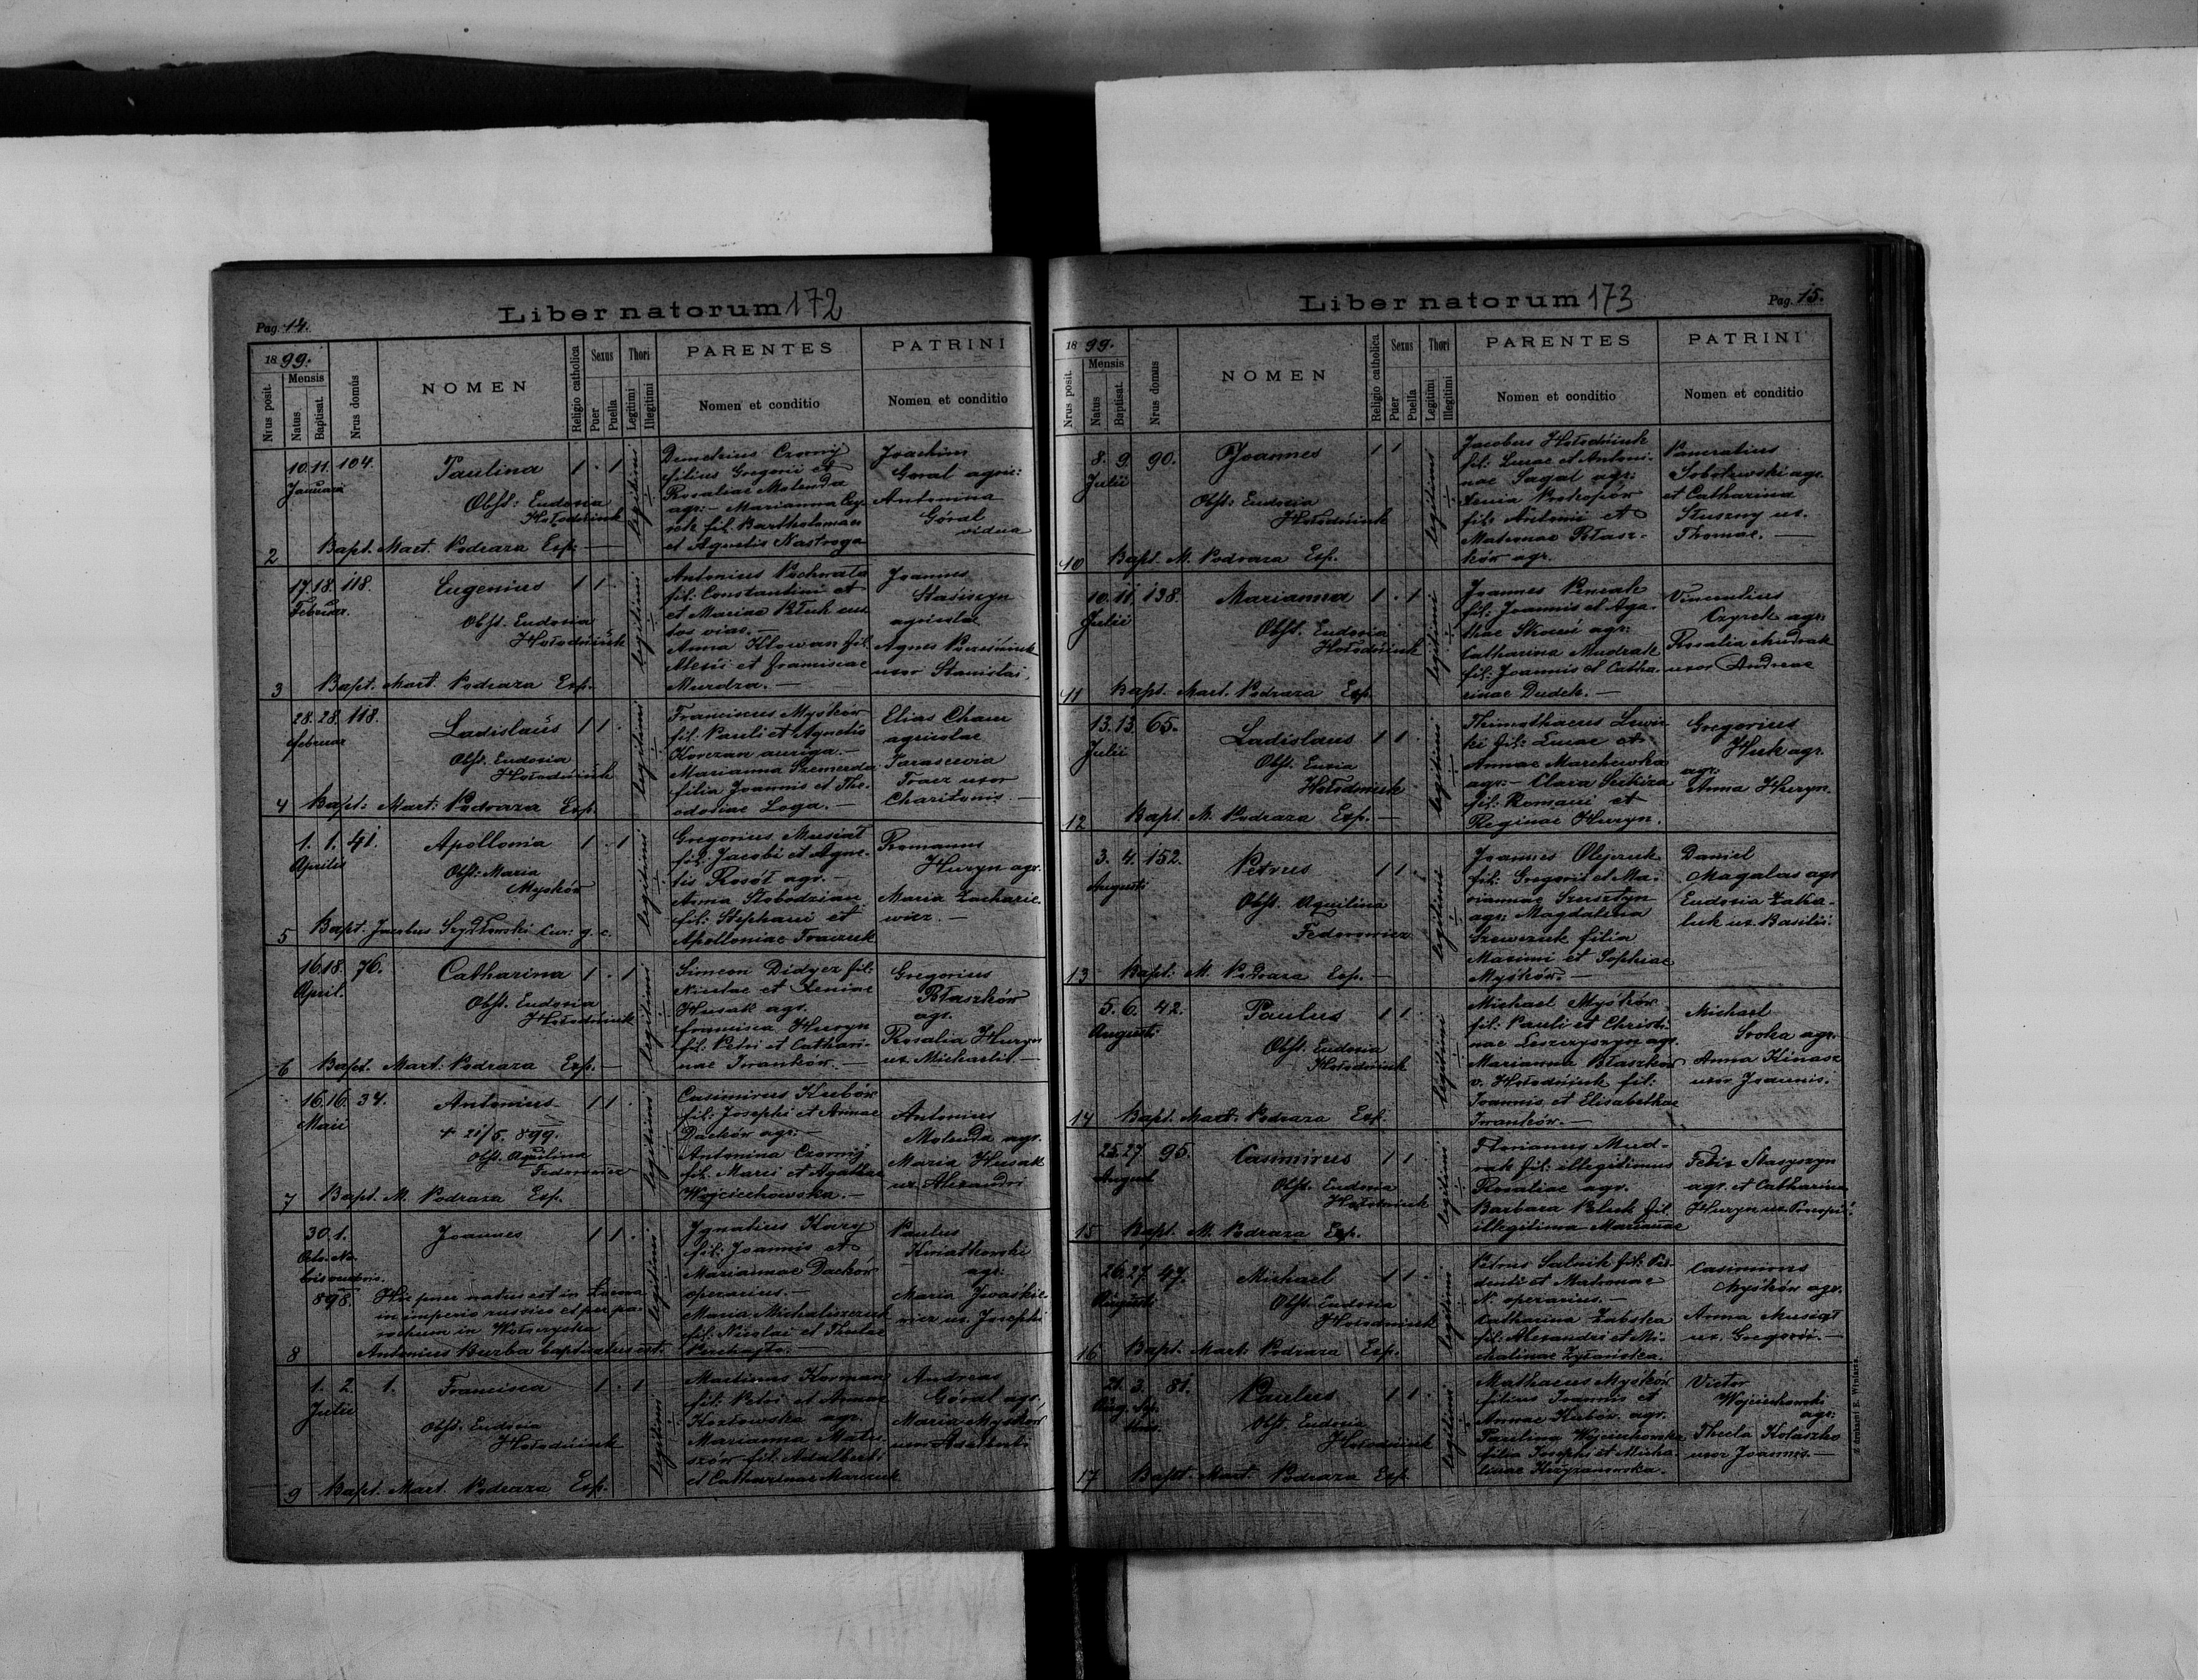 Pag. 14.
Liber natorum 172
1899.
Nrus posit.
Mensis
Natus.
Baptisat.
Nrus domús
NOMEN
Religio catholica
Sexus
Puer
Puella
Thori
Legitimi
Illegitimi
PARENTES
Nomen et conditio
PATRINI
Nomen et conditio
2
10. 11. 104.
Januarii
Paulina
1 . 1
Obst: Eudoxia
Hołodniuk
Bapt. Mart. Podraza Exp.
legitimi
Demetrius Czornij
filius Gregorii et
Rosaliae Molenda
agr. – Marianna Czy-
rek fil. Bartholomaei
et Agnetis Nastroga
Joachim
Goral agric:
Antonina
Góral
vidua
3
17. 18. 118.
Februar.
Eugenius
1 1 .
Obst. Eudoxia
Hołodniuk
Bapt. Mart. Podraza Exp.
legitimi
Antonius Pochwata
fil: Constantini et
et Mariae Ptuch cus
tos vias. –
Anna Kłowan fil
Alexii et Franciscae
Murdza. –
Joannes
Stasiszyn
agricolae
Agnes
uxor Stanislai,
4
28. 28. 118.
Februar
Ladislaus
1 1 .
Obst. Eudoxia
Hołodniuk
Bapt: Mart: Podraza Exp.
legitimi
Franciscus Myśków
fil: Pauli et Agnetis
Korczan auriga. –
Marianna Szemerda
filia Joannis et The-
odosiae Loga. –
Elias Cham
agricolae
Parascevia
Tracz uxor
Charitonis –
5
1. 1. 41.
Aprilis
Apollonia
1 . 1
Obst: Maria
Myśków
Bapt. Jacobus Szydłowski Cur: g. c.
legitimi
Gregorius Musiał
fil: Jacobi et Agne-
tis Rosół agr. –
Anna Słobodzian
fil: Stephani et
Apolloniae Traczuk
Romanus
Huryn agr.
Maria Zacharie-
wicz. –
6
16. 18. 76.
April.
Catharina
1 . 1
Obst. Eudoxia
Hołodniuk
Bapt. Mart: Podraza Exp. –
legitimi
Simeon Didycz fil:
Nicolae et Xeniae
Husak agr.
Francisca Huryn
fil: Petri et Cathari-
nae Iwanków. –
Gregorius
Błaszków
agr.
Rosalia Huryn
ux. Michaelis –
7
16. 16. 34.
Maii
Antonius
1 1 .
+ 21/5. 899.
Obst. Aquilina
Fedorowicz
Bapt. M. Podraza Exp.
legitimi
Casimirus Kubów
fil: Josephi et Annae
Daćków agr. –
Antonina Czornij
fil: Marci et Agathae
Wojciechowska. –
Antonius
Molenda agr.
Maria Husak
ux. Alexandri
8
30. 1.
Octo- No-
bris vembris.
898.
Joannes
1 1 .
Hic puer natus est in
in imperio russico et per pa-
rochum in Wołoczyska
Antonius Burba baptisatus est.
legitimi
Ignatius Kary
fil: Joannis et
Mariannae Daćków
operarius. –
Maria Michaliszczuk
fil: Nicolai et Theclae
Paulus
Kwiatkowski
agr.
Maria Iwaskie-
wicz ux. Josephi
9
1. 2. 1.
Julii
Francisca
1 . 1
Obst. Eudoxia
Hołodniuk
Bapt. Mart. Podraza Exp.
legitimi
Martinus Korman
fil: Petri et Annae
Kozłowska agr.
Marianna Matu-
szów fil. Adalberti
et Catharinae Marczuk
Andreas
Góral agr.
Maria Myśków
Pag. 15.
Liber natorum 173
1899.
Nrus posit.
Mensis
Natus
Baptisat.
Nrus domus
NOMEN
Religio catholica
Sexus
Puer
Puella
Thori
Legitimi
Illegitimi
PARENTES
Nomen et conditio
PATRINI
Nomen et conditio
10
8. 9. 90.
Julii
Joannes
1 1
Obst: Eudoxia
Hołodniuk
Bapt. M. Podraza Exp.
legitimi
Jacobus Hołodniuk
fil: Lucae et Antoni-
nae Sagal agr:
Xenia Prokopów
fil: Antonii et
Matronae Błasz-
ków agr.
Pancratius
Sobolewski agr.
et Catharina
Słuszny ux.
Thomae. –
11
10. 11. 138.
Julii
Marianna
1 . 1
Obst. Eudoxia
Hołodniuk
Bapt. Mart. Podraza Exp.
legitimi
Joannes Pencak
fil: Joannis et Aga-
thae agr:
Catharina Mudrak
fil: Joannis et Catha-
rinae Dudek. –
Vincentius
Czyrek agr:
Rosalia Mudrak
uxor Andreae
12
13. 13. 65.
Julii
Ladislaus
1 1 .
Obst.
Hołodniuk
Bapt. M. Podraza Exp. –
legitimi
Thimothaeus Lewic
ki fil: Lucae et
Annae Marchewka
agr. – Clara
fil: Romani et
Reginae Huryn.
Gregorius
Huk agr.
agr.
Anna Huryn.
13
3. 4. 152.
Augusti
Petrus
1 1 .
Obst. Aquilina
Fedorowicz
Bapt: M. Podraza Exp. –
legitimi
Joannes Olejczuk
fil: Gregorii et Ma-
riannae Szersztyn
agr. Magdalena
Szewczuk filia
Maximi et Sophiae
Myśków. –
Daniel
Magalas agr
Eudoxia Zaha-
luk ux. Basilii.
14
5. 6. 42.
Augusti
Paulus
1 1 .
Obst. Eudoxia
Hołodniuk
Bapt. Mart. Podraza Exp.
legitimi
Michael Myśków
fil: Pauli et Christi-
nae Leszczyszyn agr.
Marianna Błaszków
v. Hołodniuk fil:
Joannis et Elisabethae
Iwanków. –
Michael
Sroka agr.
Anna Kinasz
uxor Joannis.
15
25. 27. 95.
August
Casimirus
1 1
Obst. Eudoxia
Hołodniuk
Bapt. M. Podraza Exp.
legitimi
Florianus Mud-
rak fil: illegitimus
Rosaliae agr.
Barbara fil.
illegitima Mariannae
Felix Stasyszyn
agr. et Catharina
Huryn ux. Procopii.
16
26. 27. 47.
Augusti
Michael
1 1 .
Obst. Eudoxia
Hołodniuk
Bapt. Mart. Podraza Exp.
legitimi
Petrus Salnik fil:
et Matronae
N. operarius. –
Catharina Zabska
fil: Alexandri et Mi-
chalinae
Casimirus
Myśków agr.
Anna Musiał
ux. Gregorii. –
17
21. 3. 81.
Aug. Sep-
Paulus
1 1 .
Obst. Eudoxia
Hołodniuk
Bapt. Mart. Podraza Exp.
legitimi
Mathaeus Myśków
filius Joannis et
Annae Kubów agr.
Paulina Wojciechowska
filia Josephi et Micha-
linae Krzyżanowska.
Victor
Wojciechowski
agr:
Thecla Kołaszko
uxor Joannis. –
Z drukarni E. Winiarza.